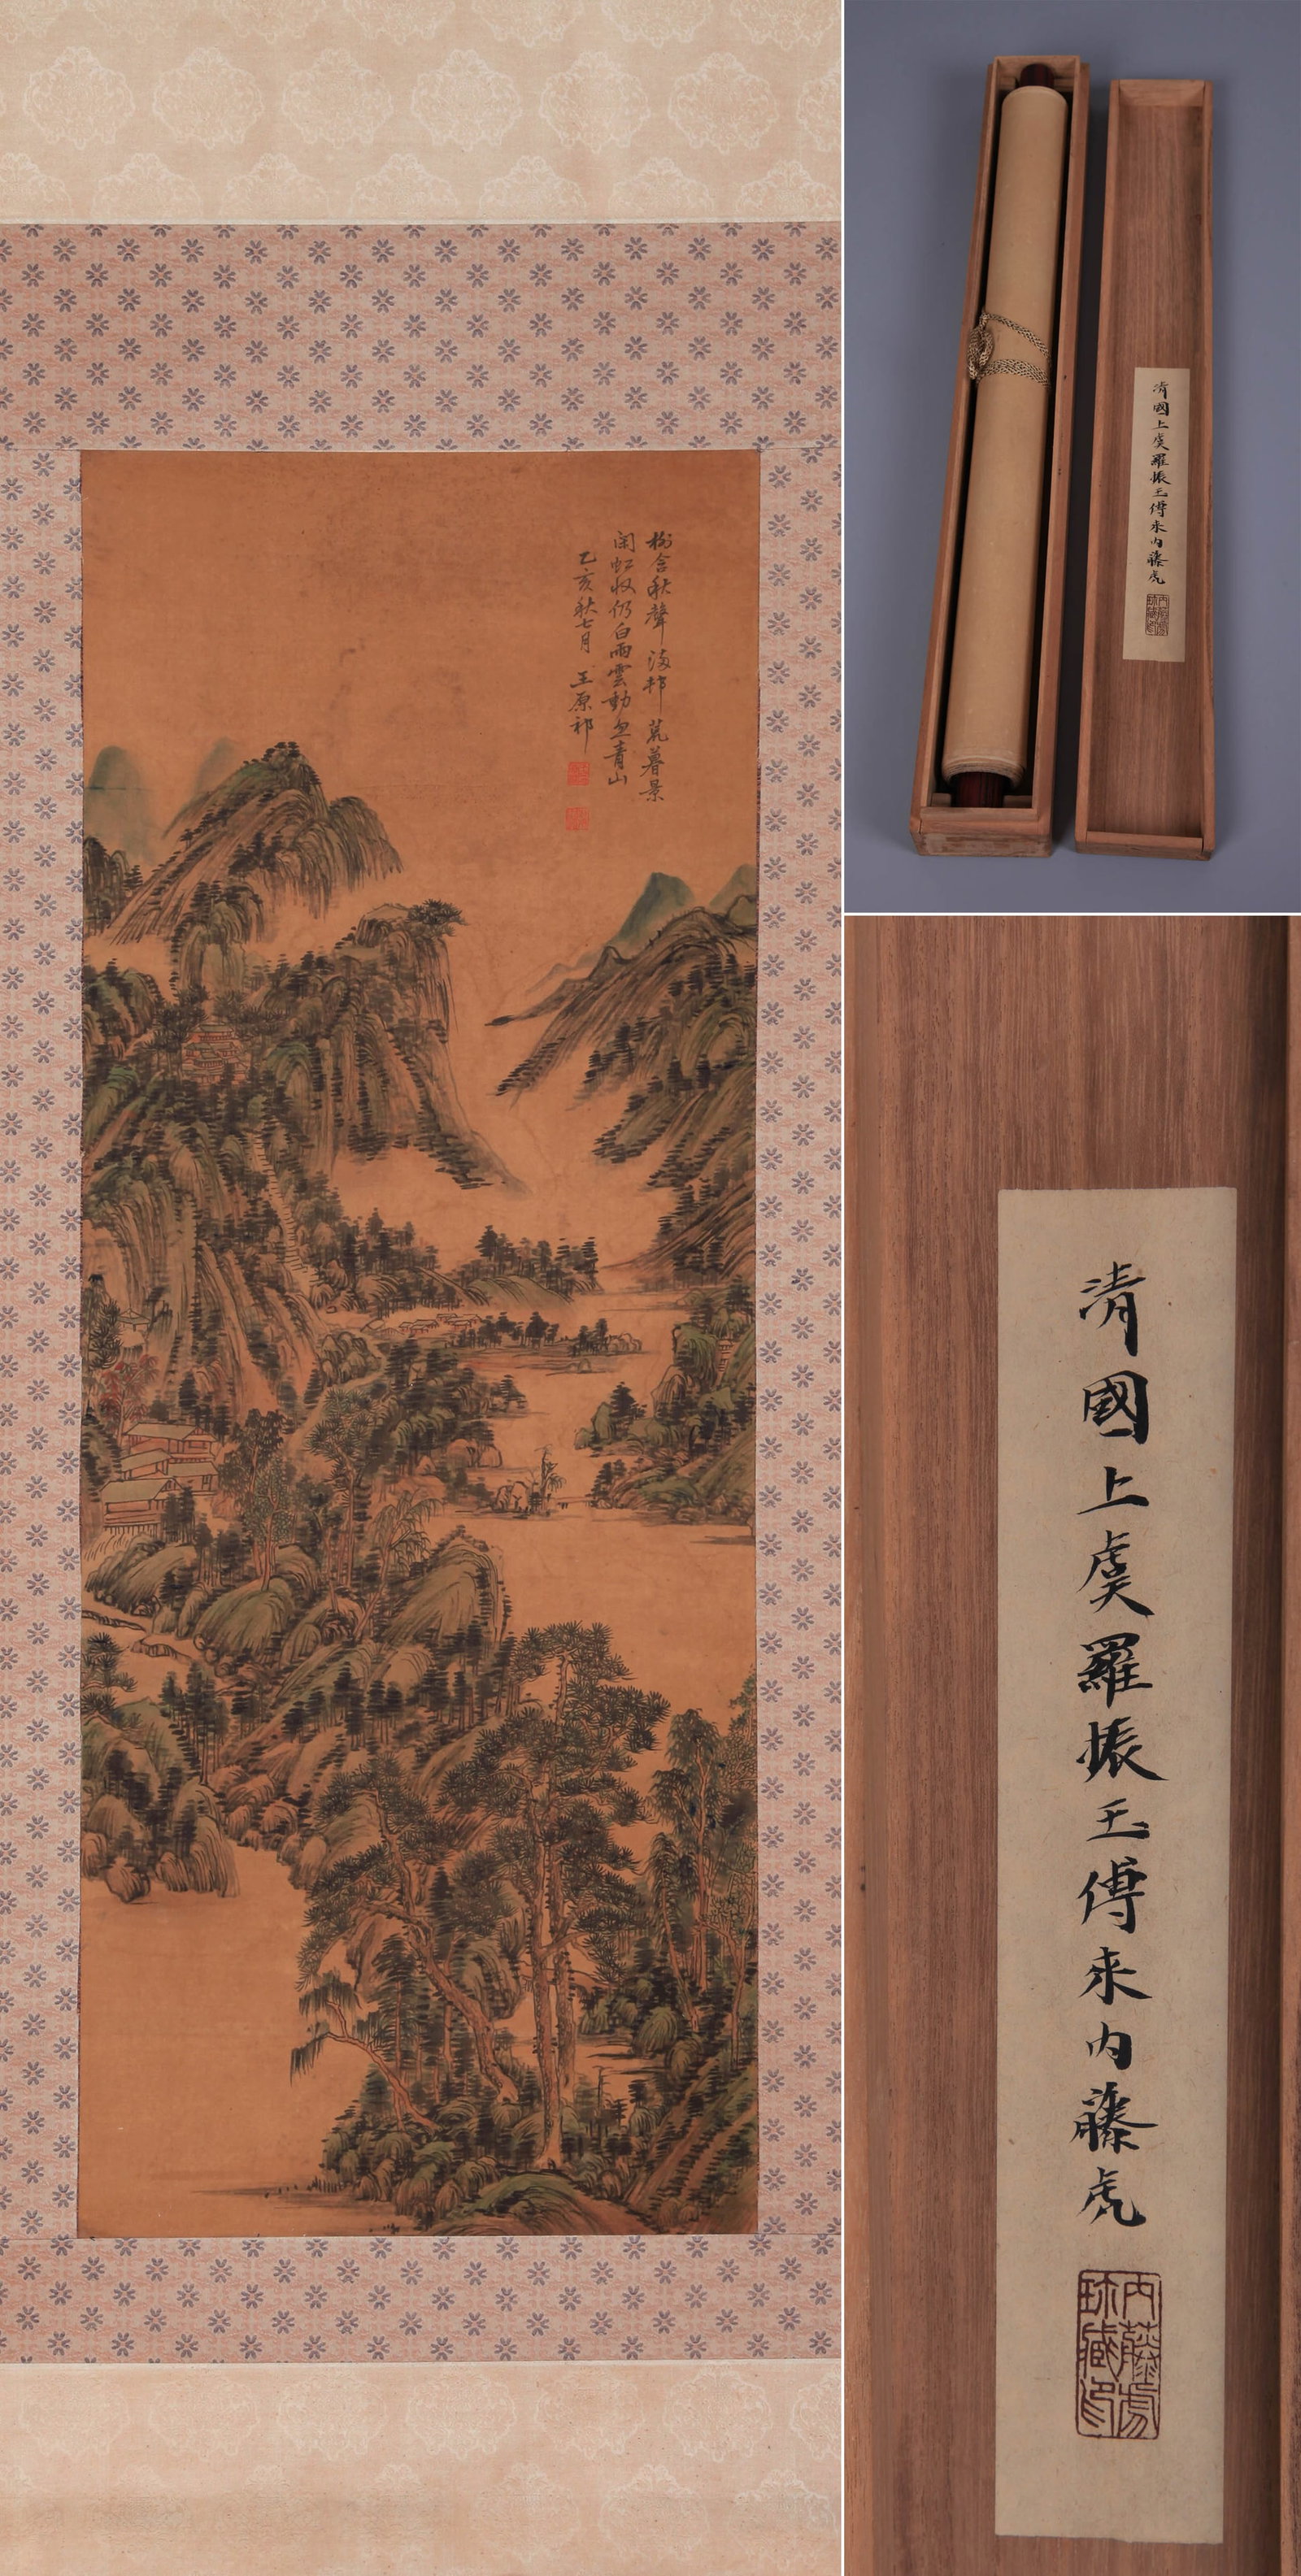 樹含秋聲海邦荒暮景
闲虹收仍白雨雲動忽青山
乙亥秋七月 王原祁
清國上虞羅振玉傳来内藤虎
内藤虎
珎藏印
清國上虞羅振玉傳来内藤虎
内藤虎
珎藏印